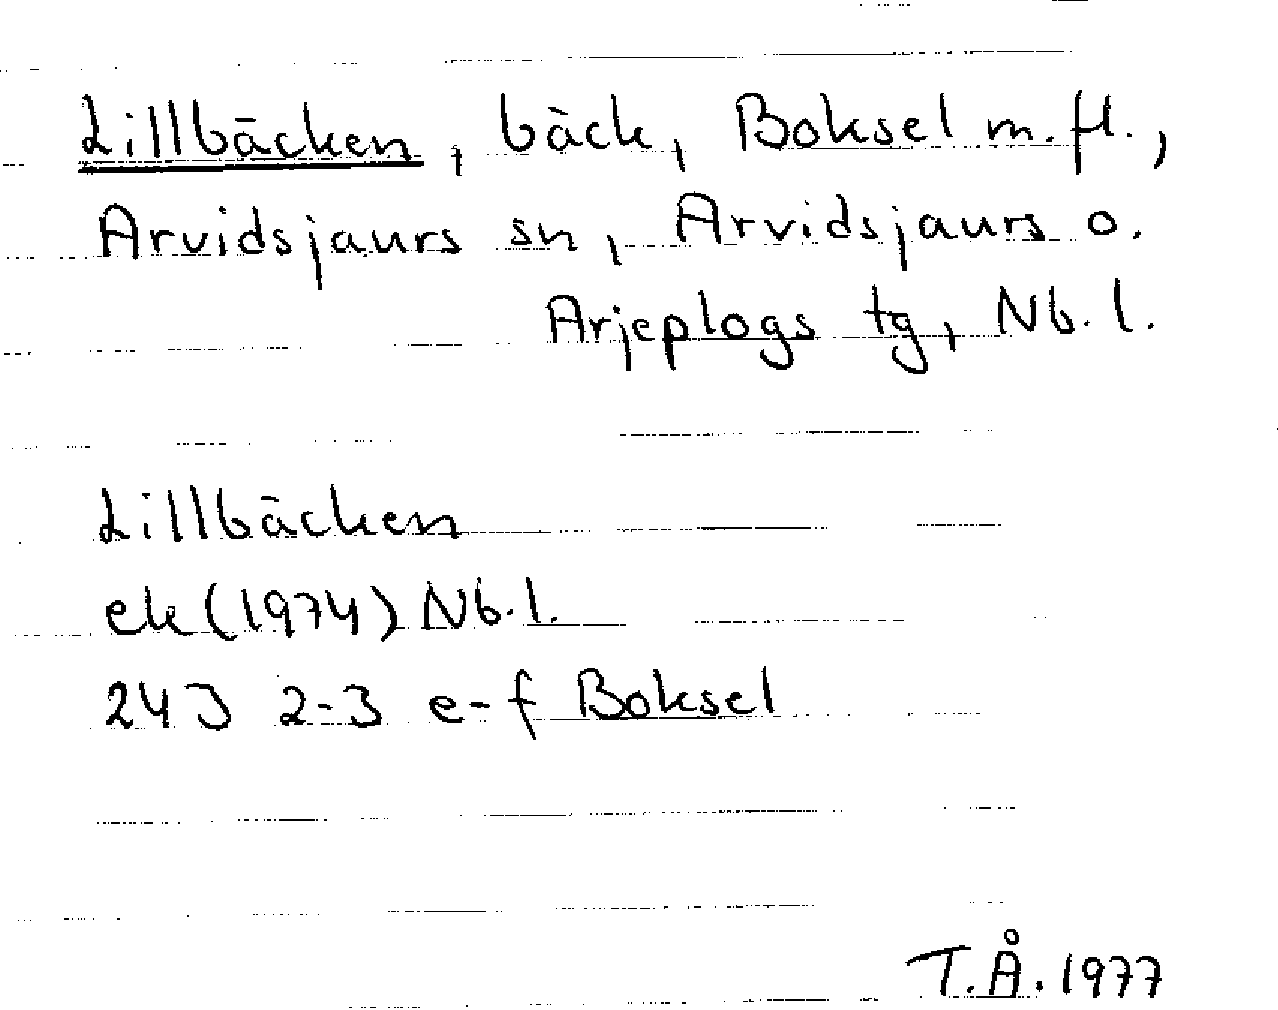 Lillbäcken, bäck, Boksel m.fl.,
Arvidsjaurs sn, Arvidsjaurs o.
Arjeplogs tg, Nb.l.
Lillbäcken
ek (1974) Nb.l.
24J 2-3 e-f Boksel
T.Å. 1977